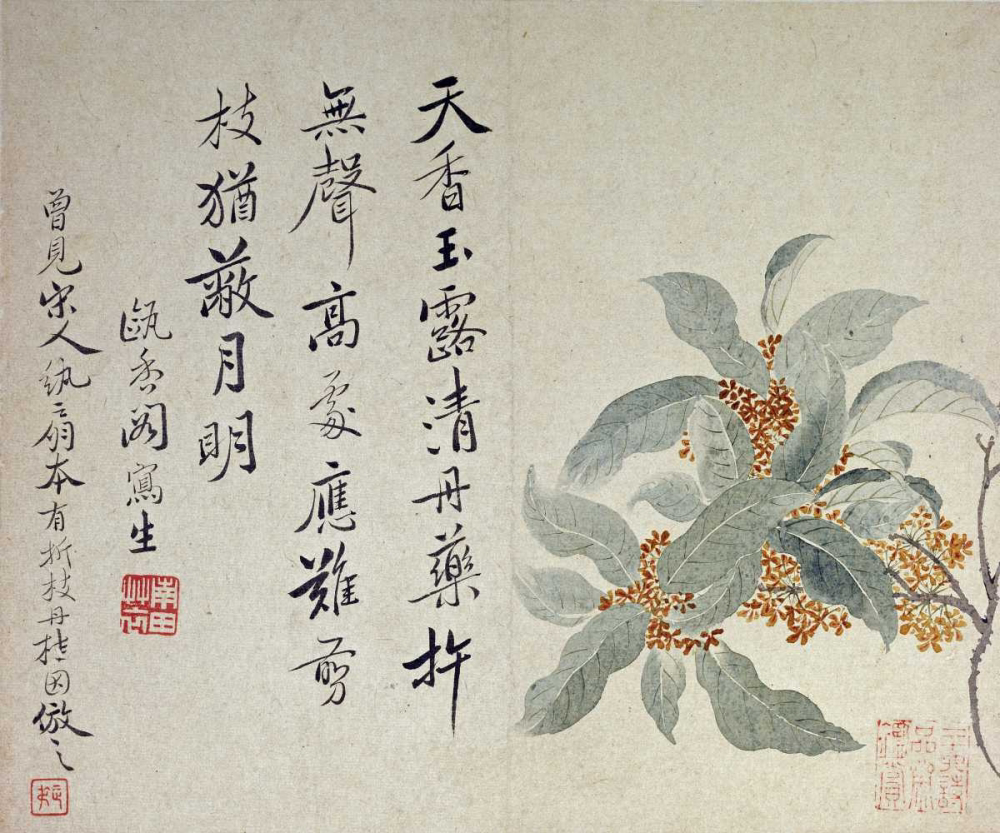 天香玉露清丹藥杵
無聲高處應難剪
枝猶蔽月明
甌香閣寫生
南田艸衣
曾見宋人紈扇本有折枝丹桂因倣之